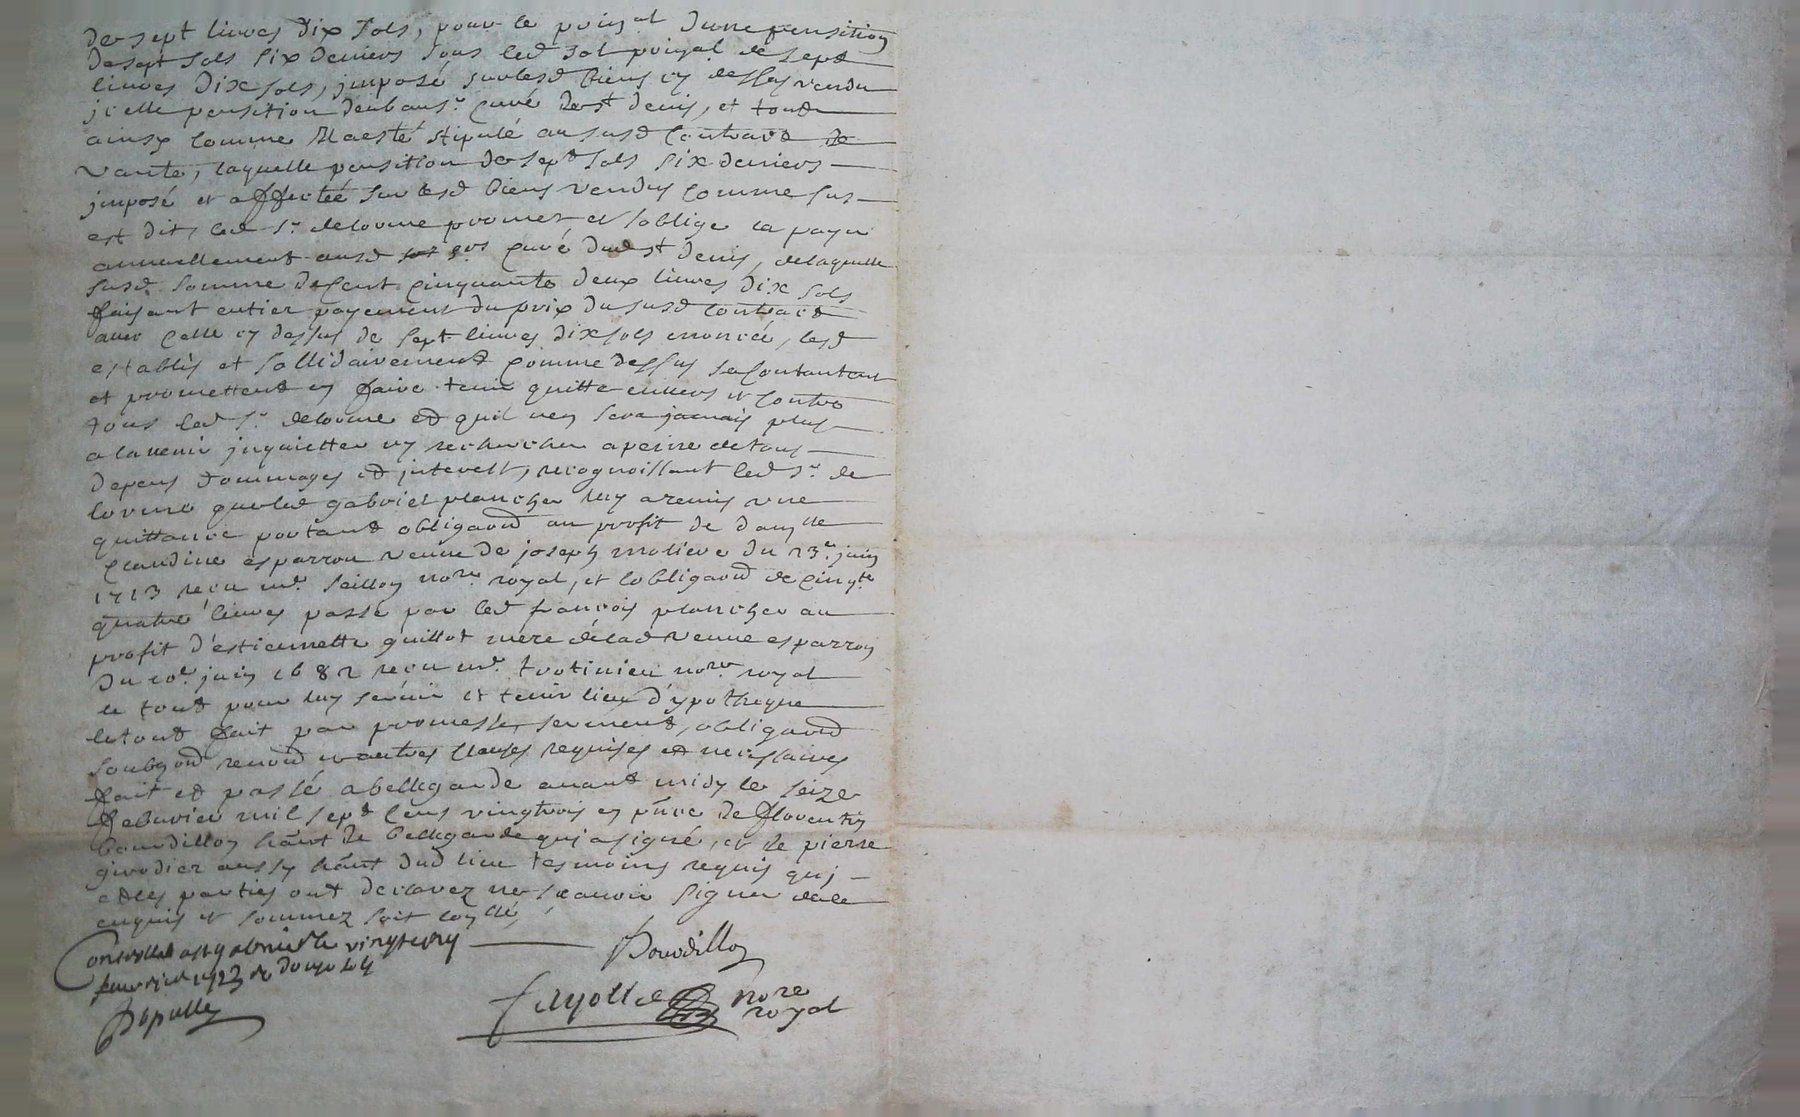 de sept livres dix sols, pour le prinal d'une pensition
de sept sols six deniers sous led sol prinal de sept
livres dix sols, jmposé sur lesd biens cy dessus vendu
jcelle pensition deub au sr curé de st denis, et tout
ainsy comme il a esté stipulé au susd contract de
vante, laquelle pensition de sept sols six deniers
jmposé et affectée sur lesd biens vendus comme sus
est dit, led sr delorme promet et s'oblige la payer
annuellement ausd sr curé dud st denis, de laquelle
susd somme de cent cinquante deux livres dix sols
faisant entier payement du prix du susd contract
avec celle cy dessus de sept livres dix sols enoncée, lesd
establis et sollidairement comme dessus se contantent
et promettent en faire tenir quitte envers et contre
tous led sr delorme et qu'il n'en sera jamais plus
a l'avenir jnquietter ny rechercher a peine de tous
depens dommages et jnterest, recognoissant led sr de
lorme que led gabriel plancher luy a remis une
quittance portant obligaon au profit de damlle
claudine esparron veuve de joseph moliere du 23e juin
1713 receu me seillon nore royal, et l'obligaon de cinqte
quatre livres passé par led françois plancher au
profit d'estiennette guillot mere de lad veuve esparron
du 20e juin 1682 receu me trotinieu nore royal
le tout pour luy servir et tenir lieu d'ypotheque
le tout fait par promesse, serment, obligaon
soubmon renon et autres clauses requises et necessaires
fait et passé a bellegarde avant midy le seize
febvrier mil sept cens vingt trois en pnce de florentin
bourdillon hant de bellegarde qui a signé, et de pierre
girodier aussy hant dud lieu tesmoins requis qui
et les parties ont declarez ne scavoir signer de ce
enquis et sommez soit conllé,
Bourdillon
Controllé a st galmier le vingt
febvrier 1723
nore
royal